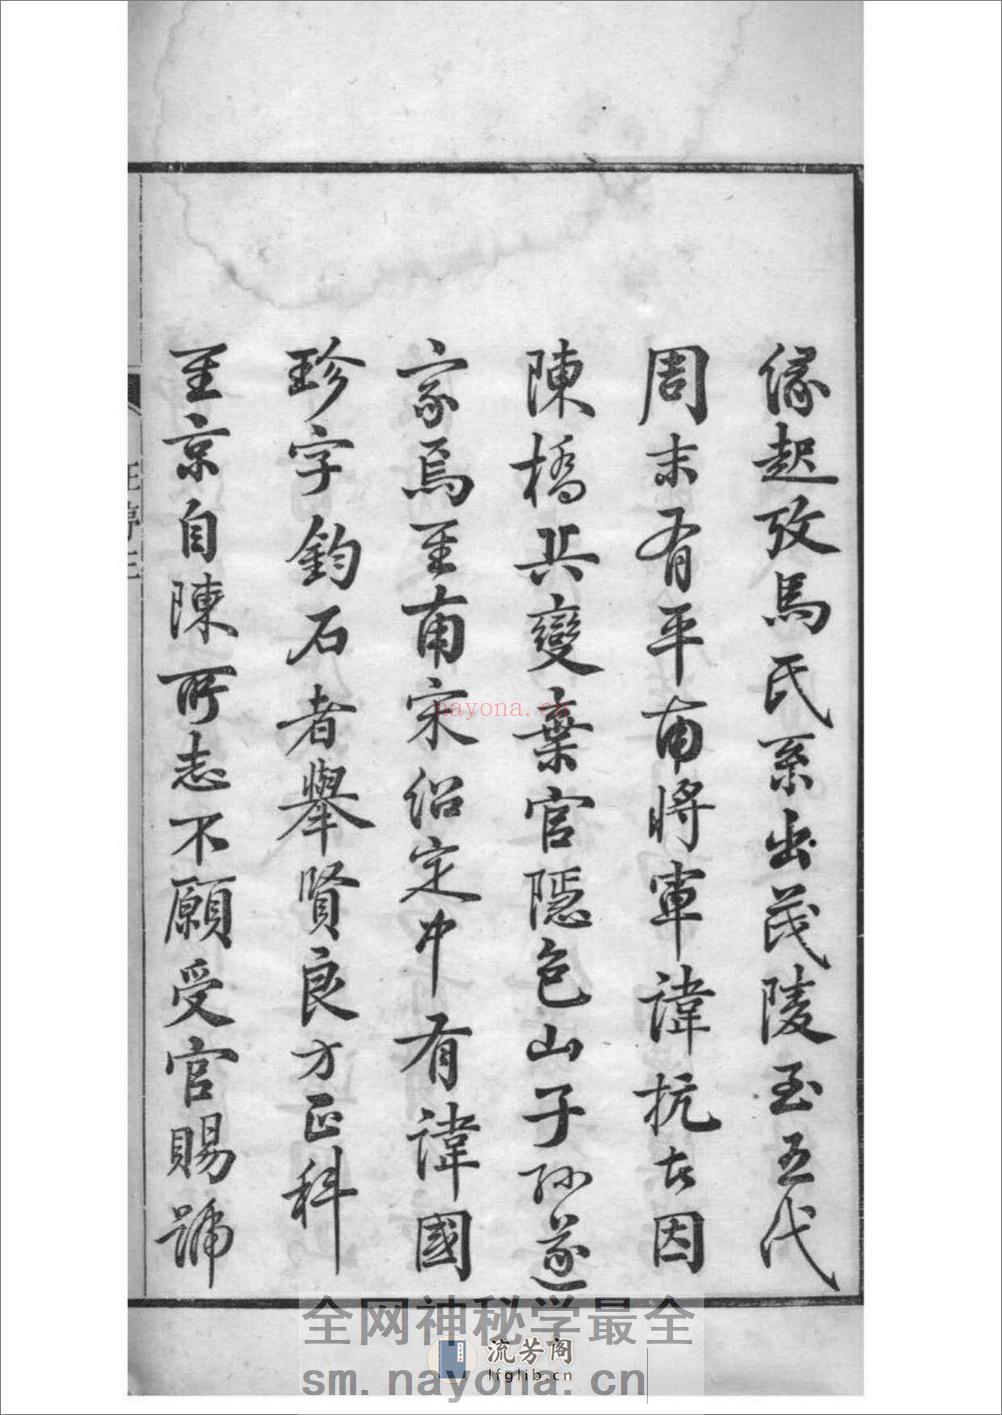 緣起攷馬氏系出茂陵至五代
周末有平南將軍諱抗者因
陳橋兵變棄官隱包山子孫遂
家焉至南宋紹定中有諱國
珍字鈞石者舉賢良方正科
至京自陳所志不願受官賜號
nayona.cn
全网神秘学最全
流芳阁
lfglib.cn
sm.nayona.cn